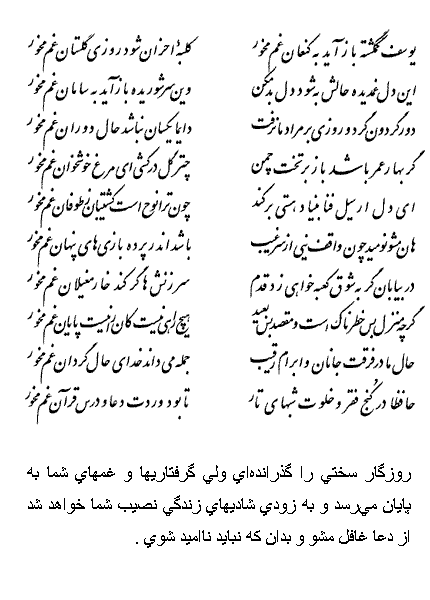 یوسف گمگشته بازآید به کنعان غم مخور	کلبهٔ احزان شود روزی گلستان غم مخور
این دل غمدیده حالش به شود دل بد مکن	وین سر شوریده بازآید به سامان غم مخور
دور گردون گر دو روزی بر مراد ما نرفت	دایما یکسان نباشد حال دوران غم مخور
گر بهار عمر باشد باز بر تخت چمن	چتر گل در سر کشی ای مرغ خوشخوان غم مخور
ای دل ار سیل فنا بنیاد هستی برکند	چون ترا نوح است کشتیبان ز طوفان غم مخور
هان مشو نومید چون واقف نیی از سر غیب	باشد اندر پرده بازی‌های پنهان غم مخور
در بیابان گر به شوق کعبه خواهی زد قدم	سرزنش‌ها گر کند خار مغیلان غم مخور
گرچه منزل بس خطرناک است و مقصد بس بعید	هیچ راهی نیست کان را نیست پایان غم مخور
حال ما در فرقت جانان و ابرام رقیب	جمله می داند خدای حال گردان غم مخور
حافظا در کنج فقر و خلوت شبهای تار	تا بود وردت دعا و درس قرآن غم مخور
روزگار سختي را گذرانده‌اي ولي گرفتاريها و غمهاي شما به
پايان مي‌رسد و به زودي شاديهاي زندگي نصيب شما خواهد شد
از دعا غافل مشو و بدان كه نبايد نااميد شوي .